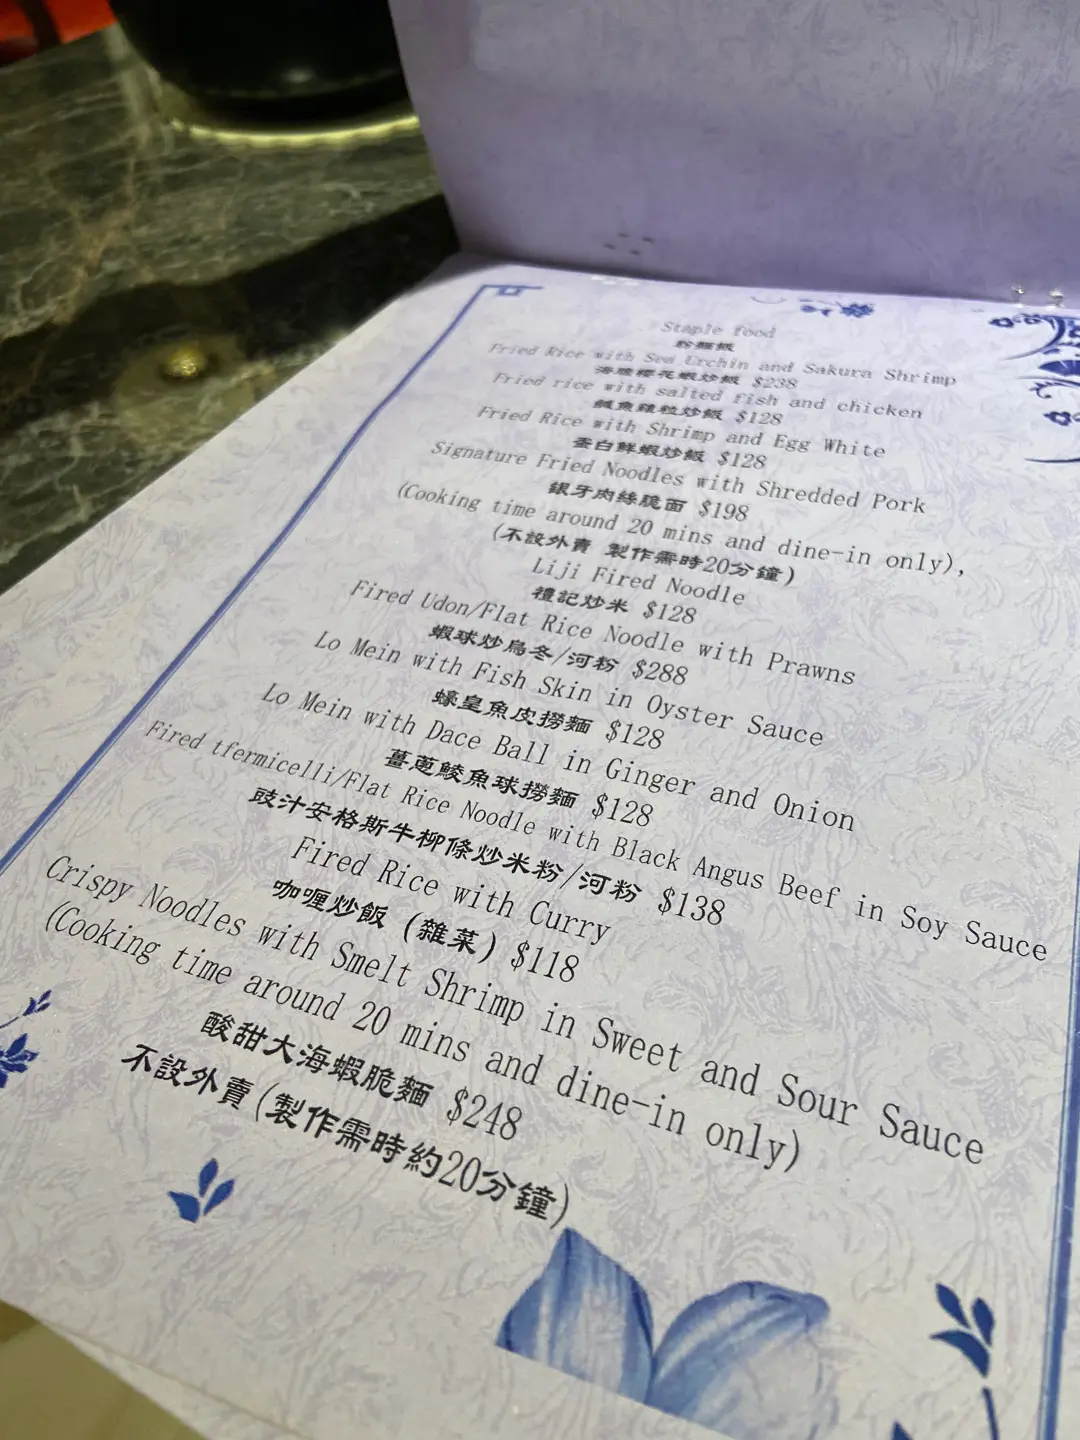 Staple food
粉麵飯
Fried Rice with Sea Urchin and Sakura Shrimp
海膽櫻花蝦炒飯 $238
Fried rice with salted fish and chicken
鹹魚雞粒炒飯 $128
Fried Rice with Shrimp and Egg White
蛋白鮮蝦炒飯 $128
Signature Fried Noodles with Shredded Pork
銀牙肉絲脆面 $198
(Cooking time around 20 mins and dine-in only),
(不設外賣 製作需時20分鐘)
Liji Fired Noodle
禮記炒米 $128
Fired Udon/Flat Rice Noodle with Prawns
蝦球炒烏冬/河粉 $288
Lo Mein with Fish Skin in Oyster Sauce
蠔皇魚皮撈麵 $128
Lo Mein with Dace Ball in Ginger and Onion
薑蔥鯪魚球撈麵 $128
Fired tfermicelli/Flat Rice Noodle with Black Angus Beef in Soy Sauce
豉汁安格斯牛柳條炒米粉/河粉 $138
Fired Rice with Curry
咖喱炒飯 (雜菜) $118
Crispy Noodles with Smelt Shrimp in Sweet and Sour Sauce
(Cooking time around 20 mins and dine-in only)
酸甜大海蝦脆麵 $248
不設外賣(製作需時約20分鐘)